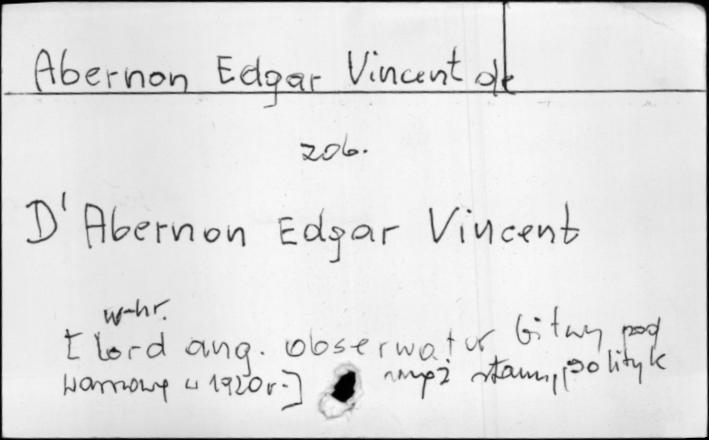 Abernon Edgar Vincent de
zob.
D'Abernon Edgar Vincent
w-hr.
[lord ang. obserwator bitwy pod
Warszawą w 1920r.] mąż stanu, polityk